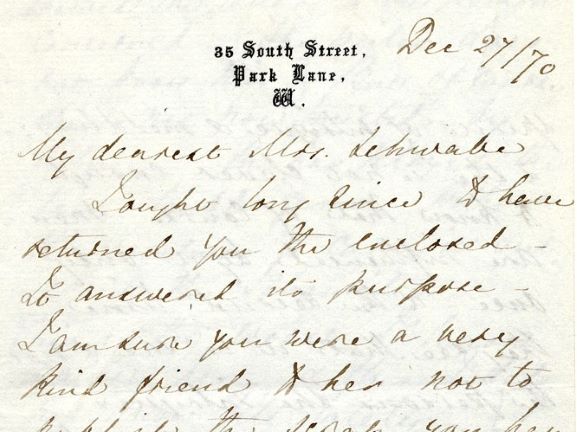 35 South Street,
Park Lane,
W.
Dec 27/70
My dearest Mrs. Schwabe
I ought long since to have
returned you the enclosed –
It answered its purpose –
I am sure you were a very
kind friend to her not to
publish the you